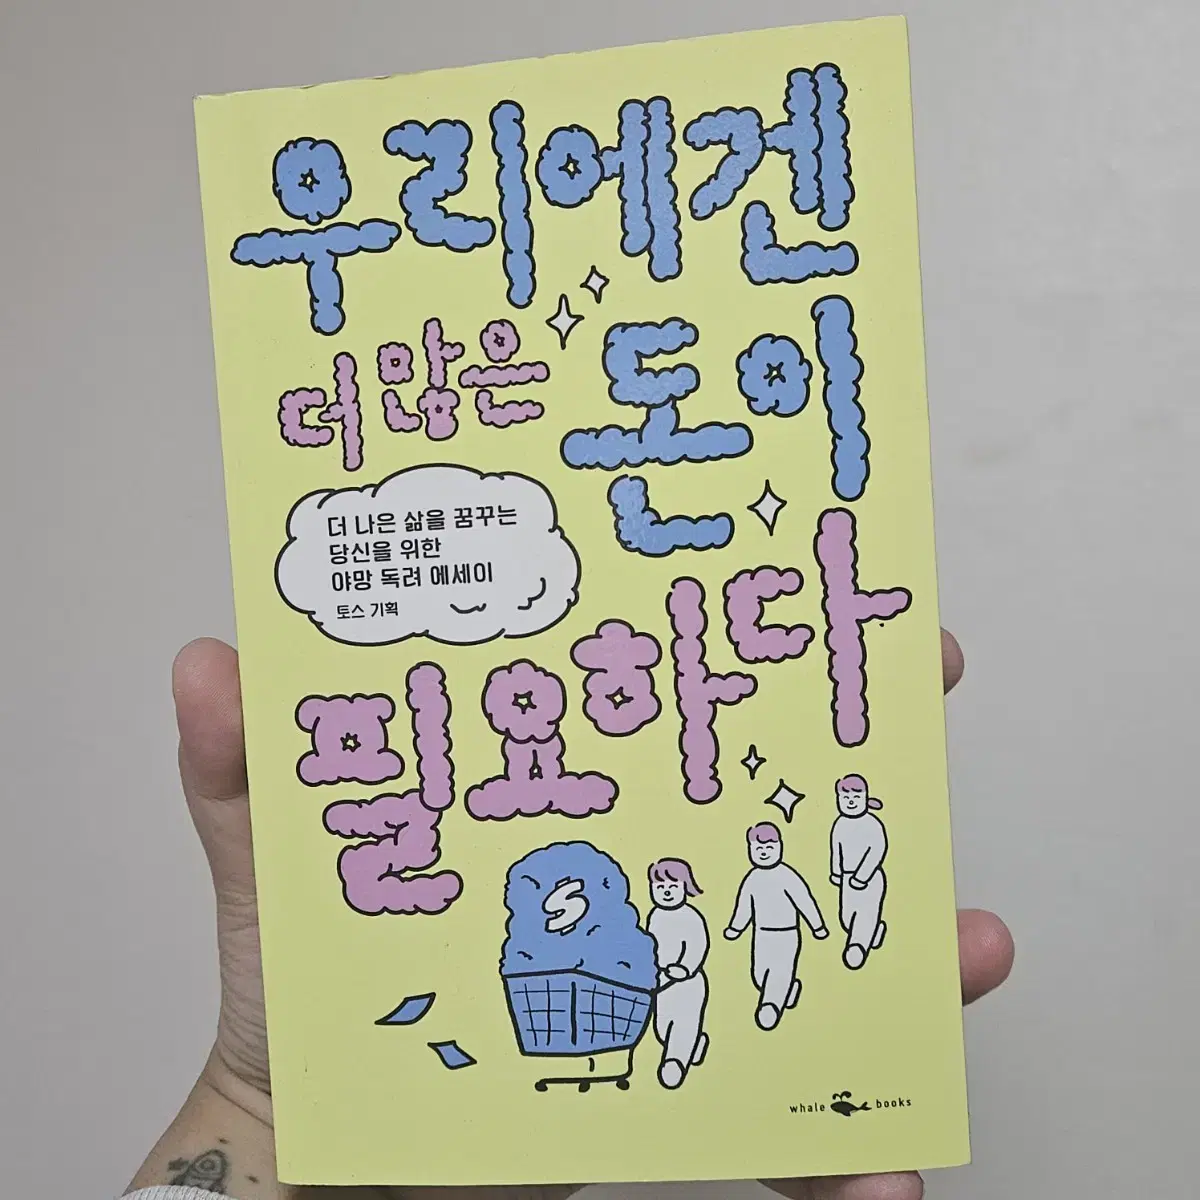 우리에겐
더 많은 돈이
더 나은 삶을 꿈꾸는
당신을 위한
야망 독려 에세이
토스 기획
필요하다
$
whale books